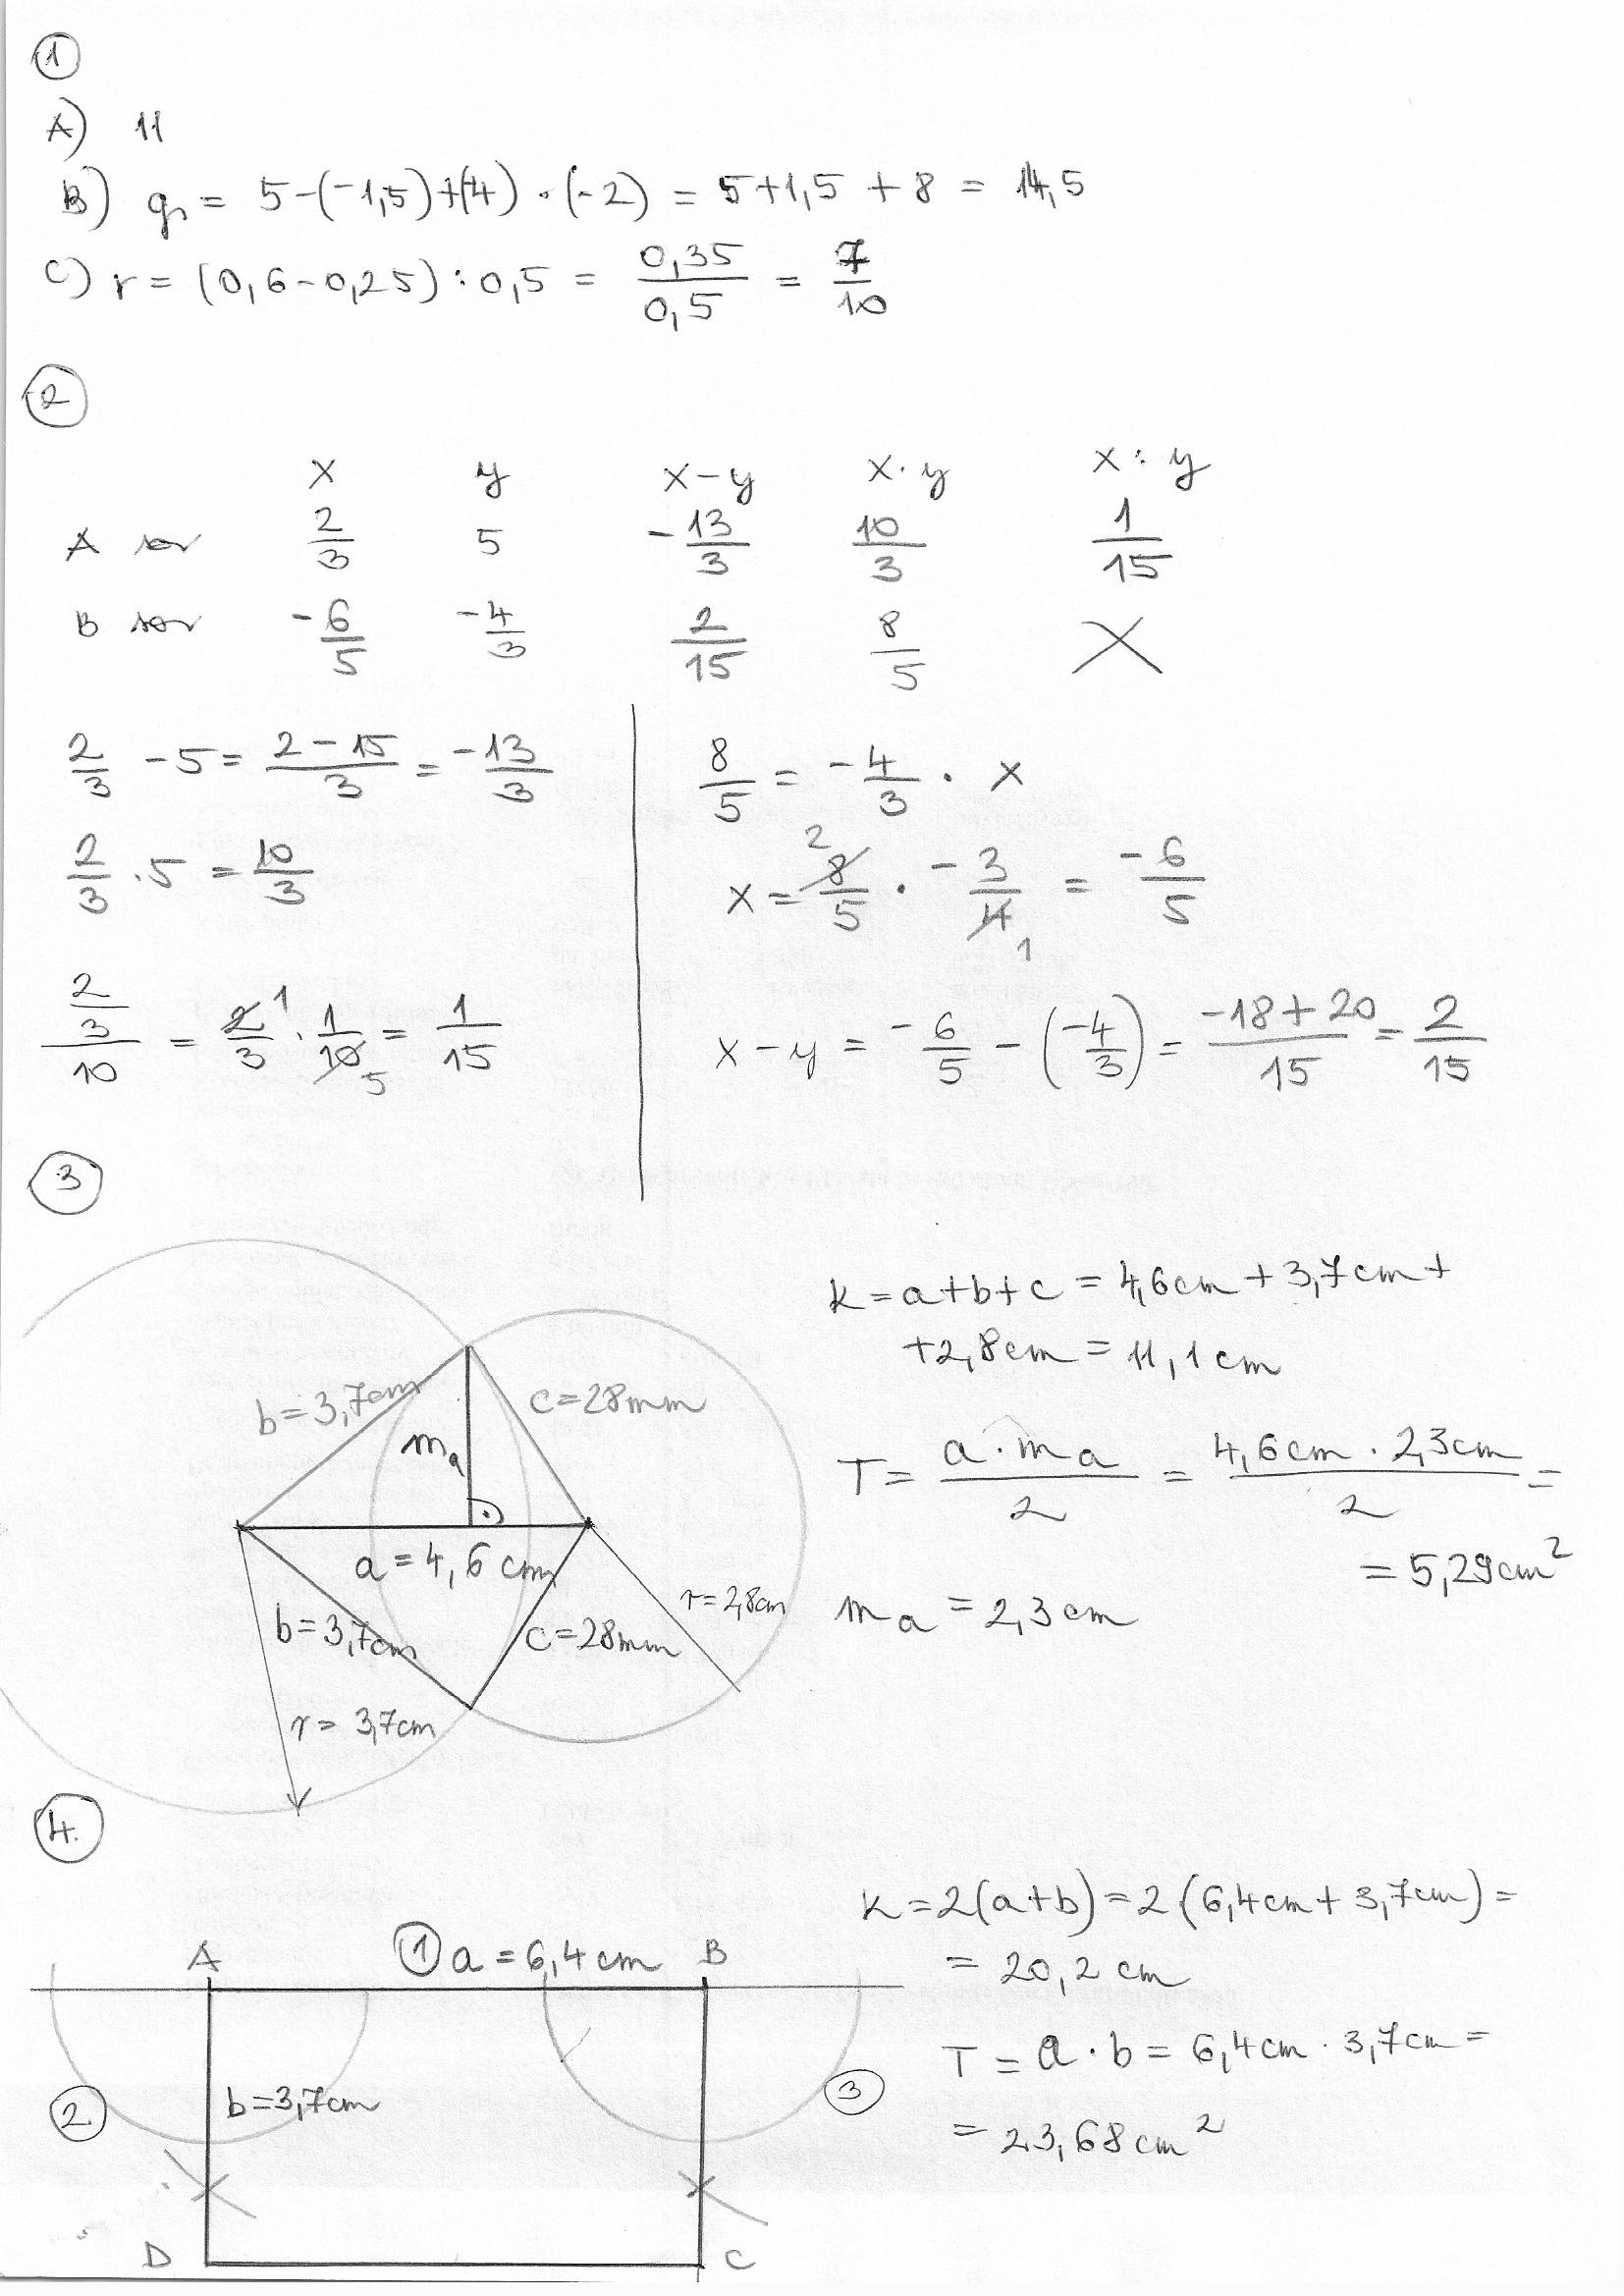 1
A) 11
B) q = 5-(-1,5)+(4)·(-2) = 5+1,5+8 = 14,5
C) r = (0,6-0,25):0,5 = 0,35/0,5 = 7/10
2
x y x-y x·y x:y
A sor 2/3 5 -13/3 10/3 1/15
B sor -6/5 -4/3 2/15 8/5 X
2/3 -5 = (2-15)/3 = -13/3
2/3 ·5 = 10/3
(2/3)/10 = 2/3 1 · 1/10 5 = 1/15
8/5 = -4/3 · x
x = 2 8/5 · -3/4 1 = -6/5
x-y = -6/5 - (-4/3) = (-18+20)/15 = 2/15
3
b=3,7cm
c=28mm
ma
a=4,6 cm
b=3,7cm
c=28mm
r=2,8cm
r= 3,7cm
K=a+b+c = 4,6cm+3,7cm+
+2,8cm = 11,1cm
T= a·ma/2 = 4,6cm·2,3cm/2 =
= 5,29cm²
ma = 2,3cm
4.
A 1 a=6,4cm B
2 b=3,7cm 3
D C
K=2(a+b)=2(6,4cm+3,7cm)=
= 20,2 cm
T= a·b = 6,4cm·3,7cm=
= 23,68cm²